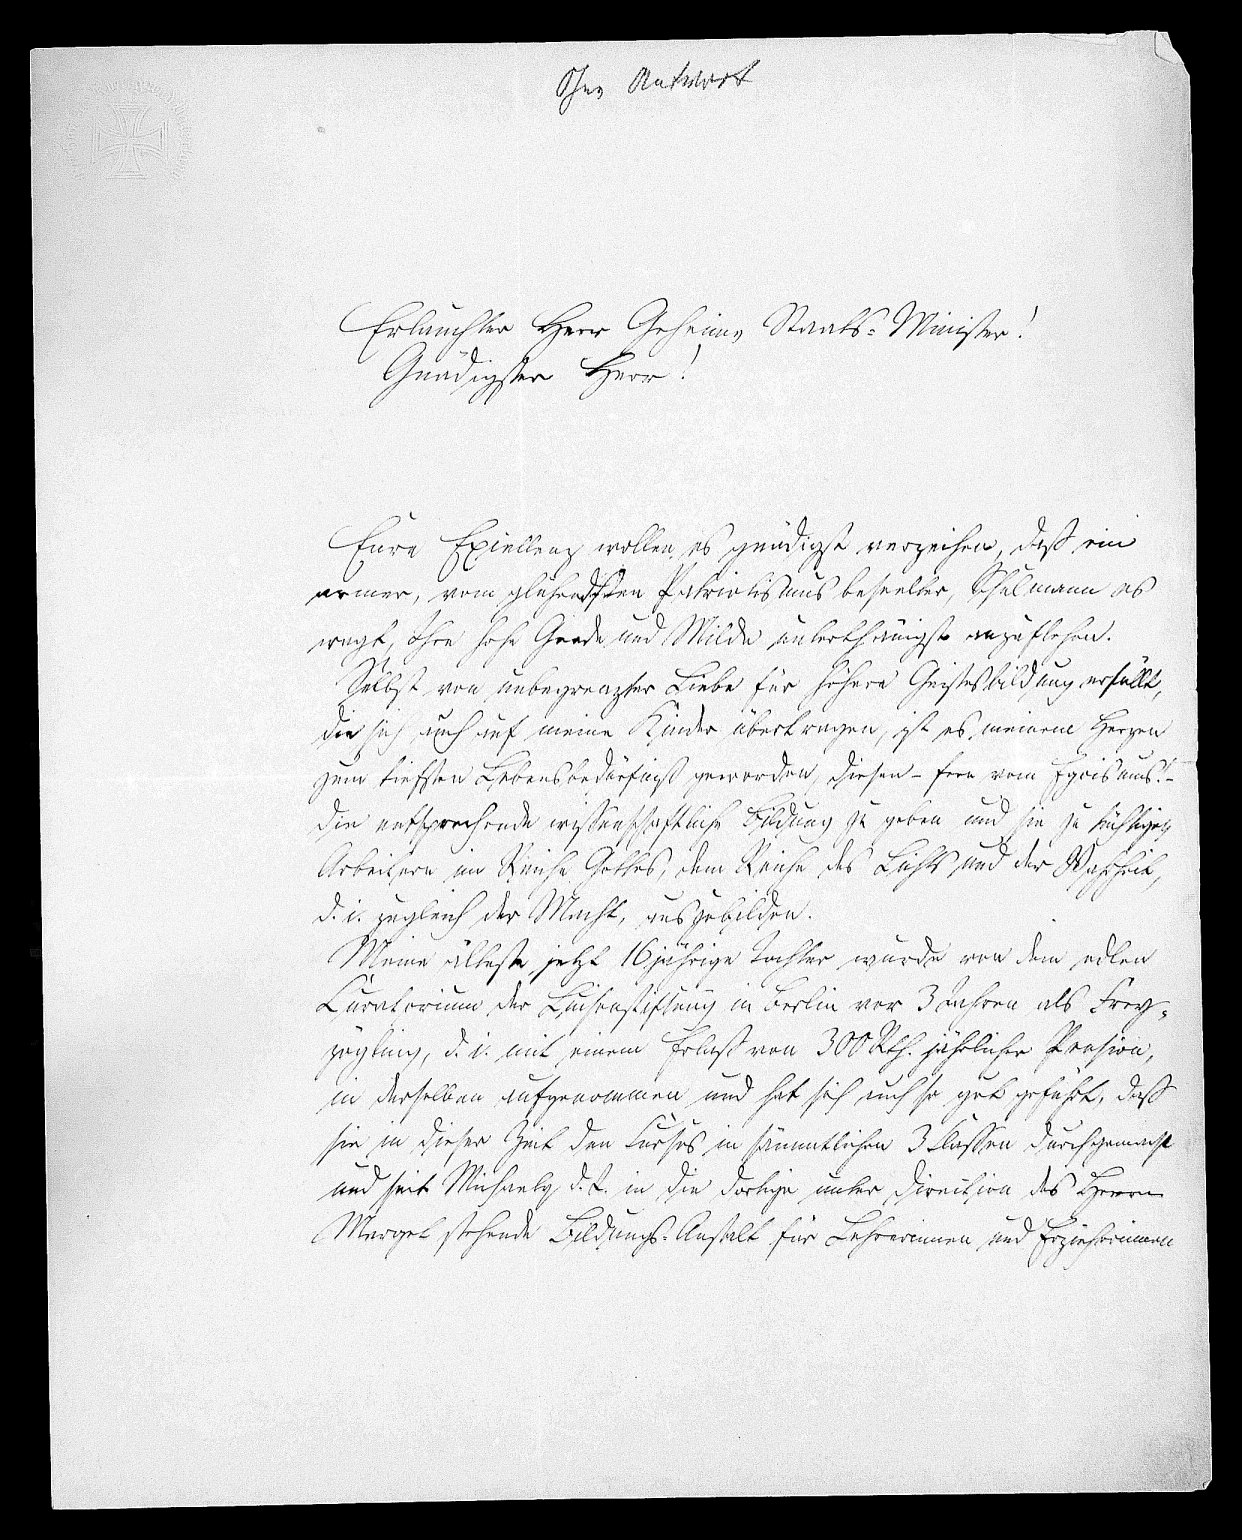 Ohne Antwort
Erlauchter Herr Geheime Staats-Minister!
Gnädigster Herr!
Eure Excellenz wollen es gnädigst verzeihen, daß ein
armer, vom glühendsten Patriotismus beseelter, Schulmann es
wagt, Ihre hohe Gnade und Milde unterthänigst anzuflehen.
Selbst von unbegrenzter Liebe für höhere Geistesbildung erfüllt,
die sich auch auf meine Kinder übertragen, ist es meinem Herzen
zum tiefsten Lebensbedürfniß geworden, diesen - fern vom Egoismus! -
die entsprechende wissenschaftliche Bildung zu geben und sie zu tüchtigen
Arbeitern im Reiche Gottes, dem Reiche des Lichts und der Wahrheit,
d. i. zugleich der Macht, auszubilden.
Meine älteste jetzt 16jährige Tochter wurde von dem edlen
Curatorium der Luisenstiftung in Berlin vor 3 Jahren als Frey-
zögling, d. i. mit einem Erlaß von 300 Rth. jährlicher Pension,
in derselben aufgenommen und hat sich auch so gut geführt, daß
sie in dieser Zeit den Cursus in sämmtlichen 3 Klassen durchgemacht
und seit Michaely d. J. in die dortige unter Direction des Herrn
Merget stehende Bildungs-Anstalt für Lehrerinnen und Erzieherinnen